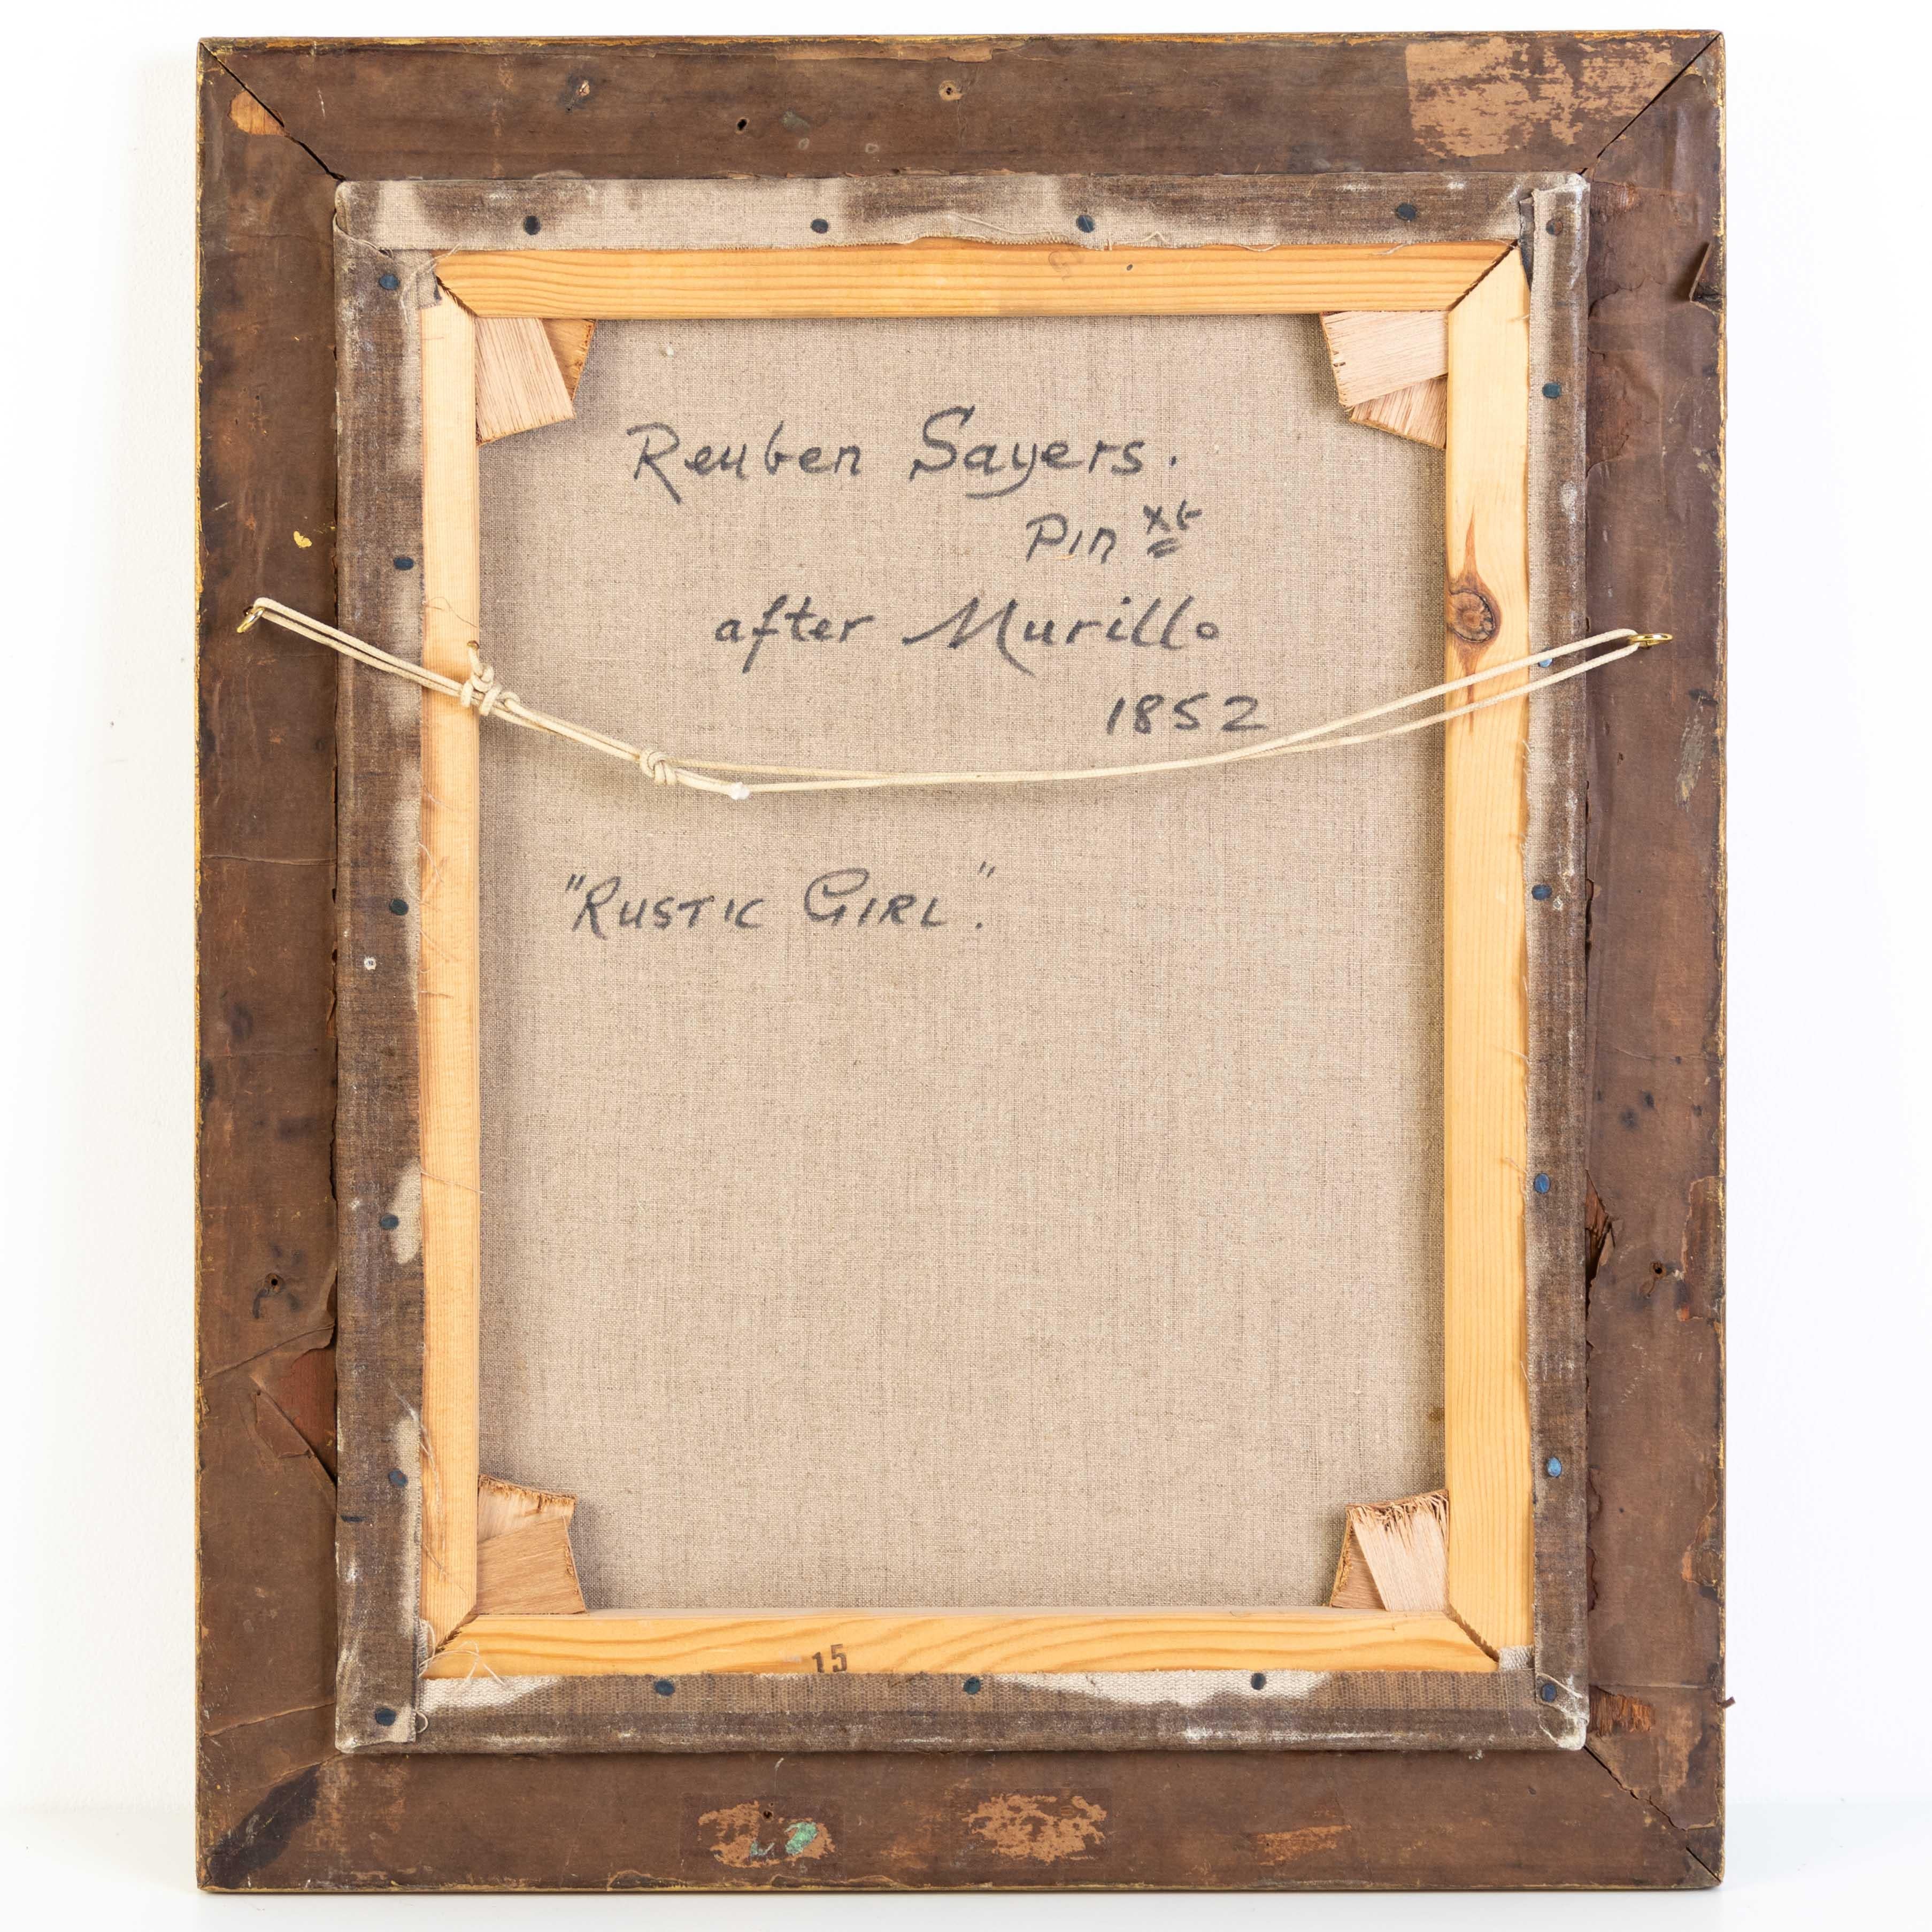 Reuben Sayers.
Pin xt
after Murillo
1852
"RUSTIC GIRL".
15